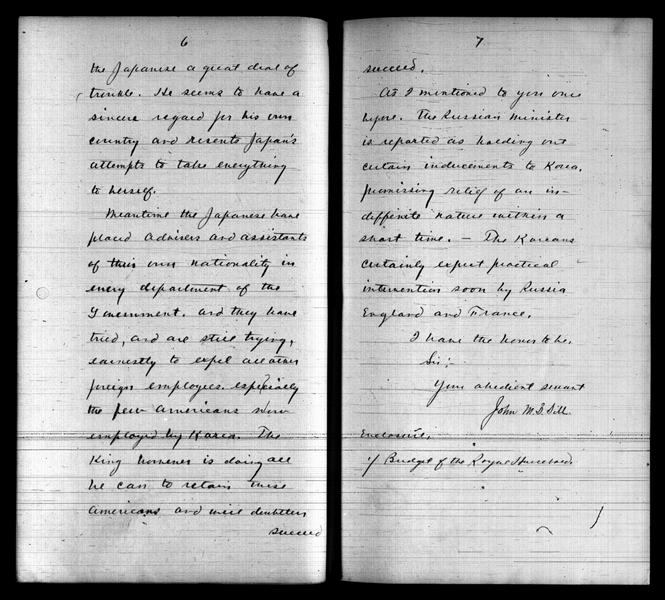 6
the Japanese a great deal of
trouble. He seems to have a
sincere regard for his own
country and resents Japan's
attempts to take everything
to herself.
Meantime the Japanese have
placed advisers and assistants
of their own nationality in
every department of the
Government. and they have
tried, and are still trying,
earnestly to expel all other
foreign employees. especially
the few Americans now
employed by Korea. The
King however is doing all
he can to retain these
Americans and will doubtless
succeed
7
succeed.
As I mentioned to you once
before. The Russian Minister
is reported as holding out
certain inducements to Korea.
promissing relief of an in-
diffinite nature within a
short time. — The Koreans
certainly expect practical
intervention soon by Russia
England and France.
I have the honor to be.
Sir:-
Your obedient servant
John M. B. Sill
Enclosure.
1/ Budget of the Royal Household